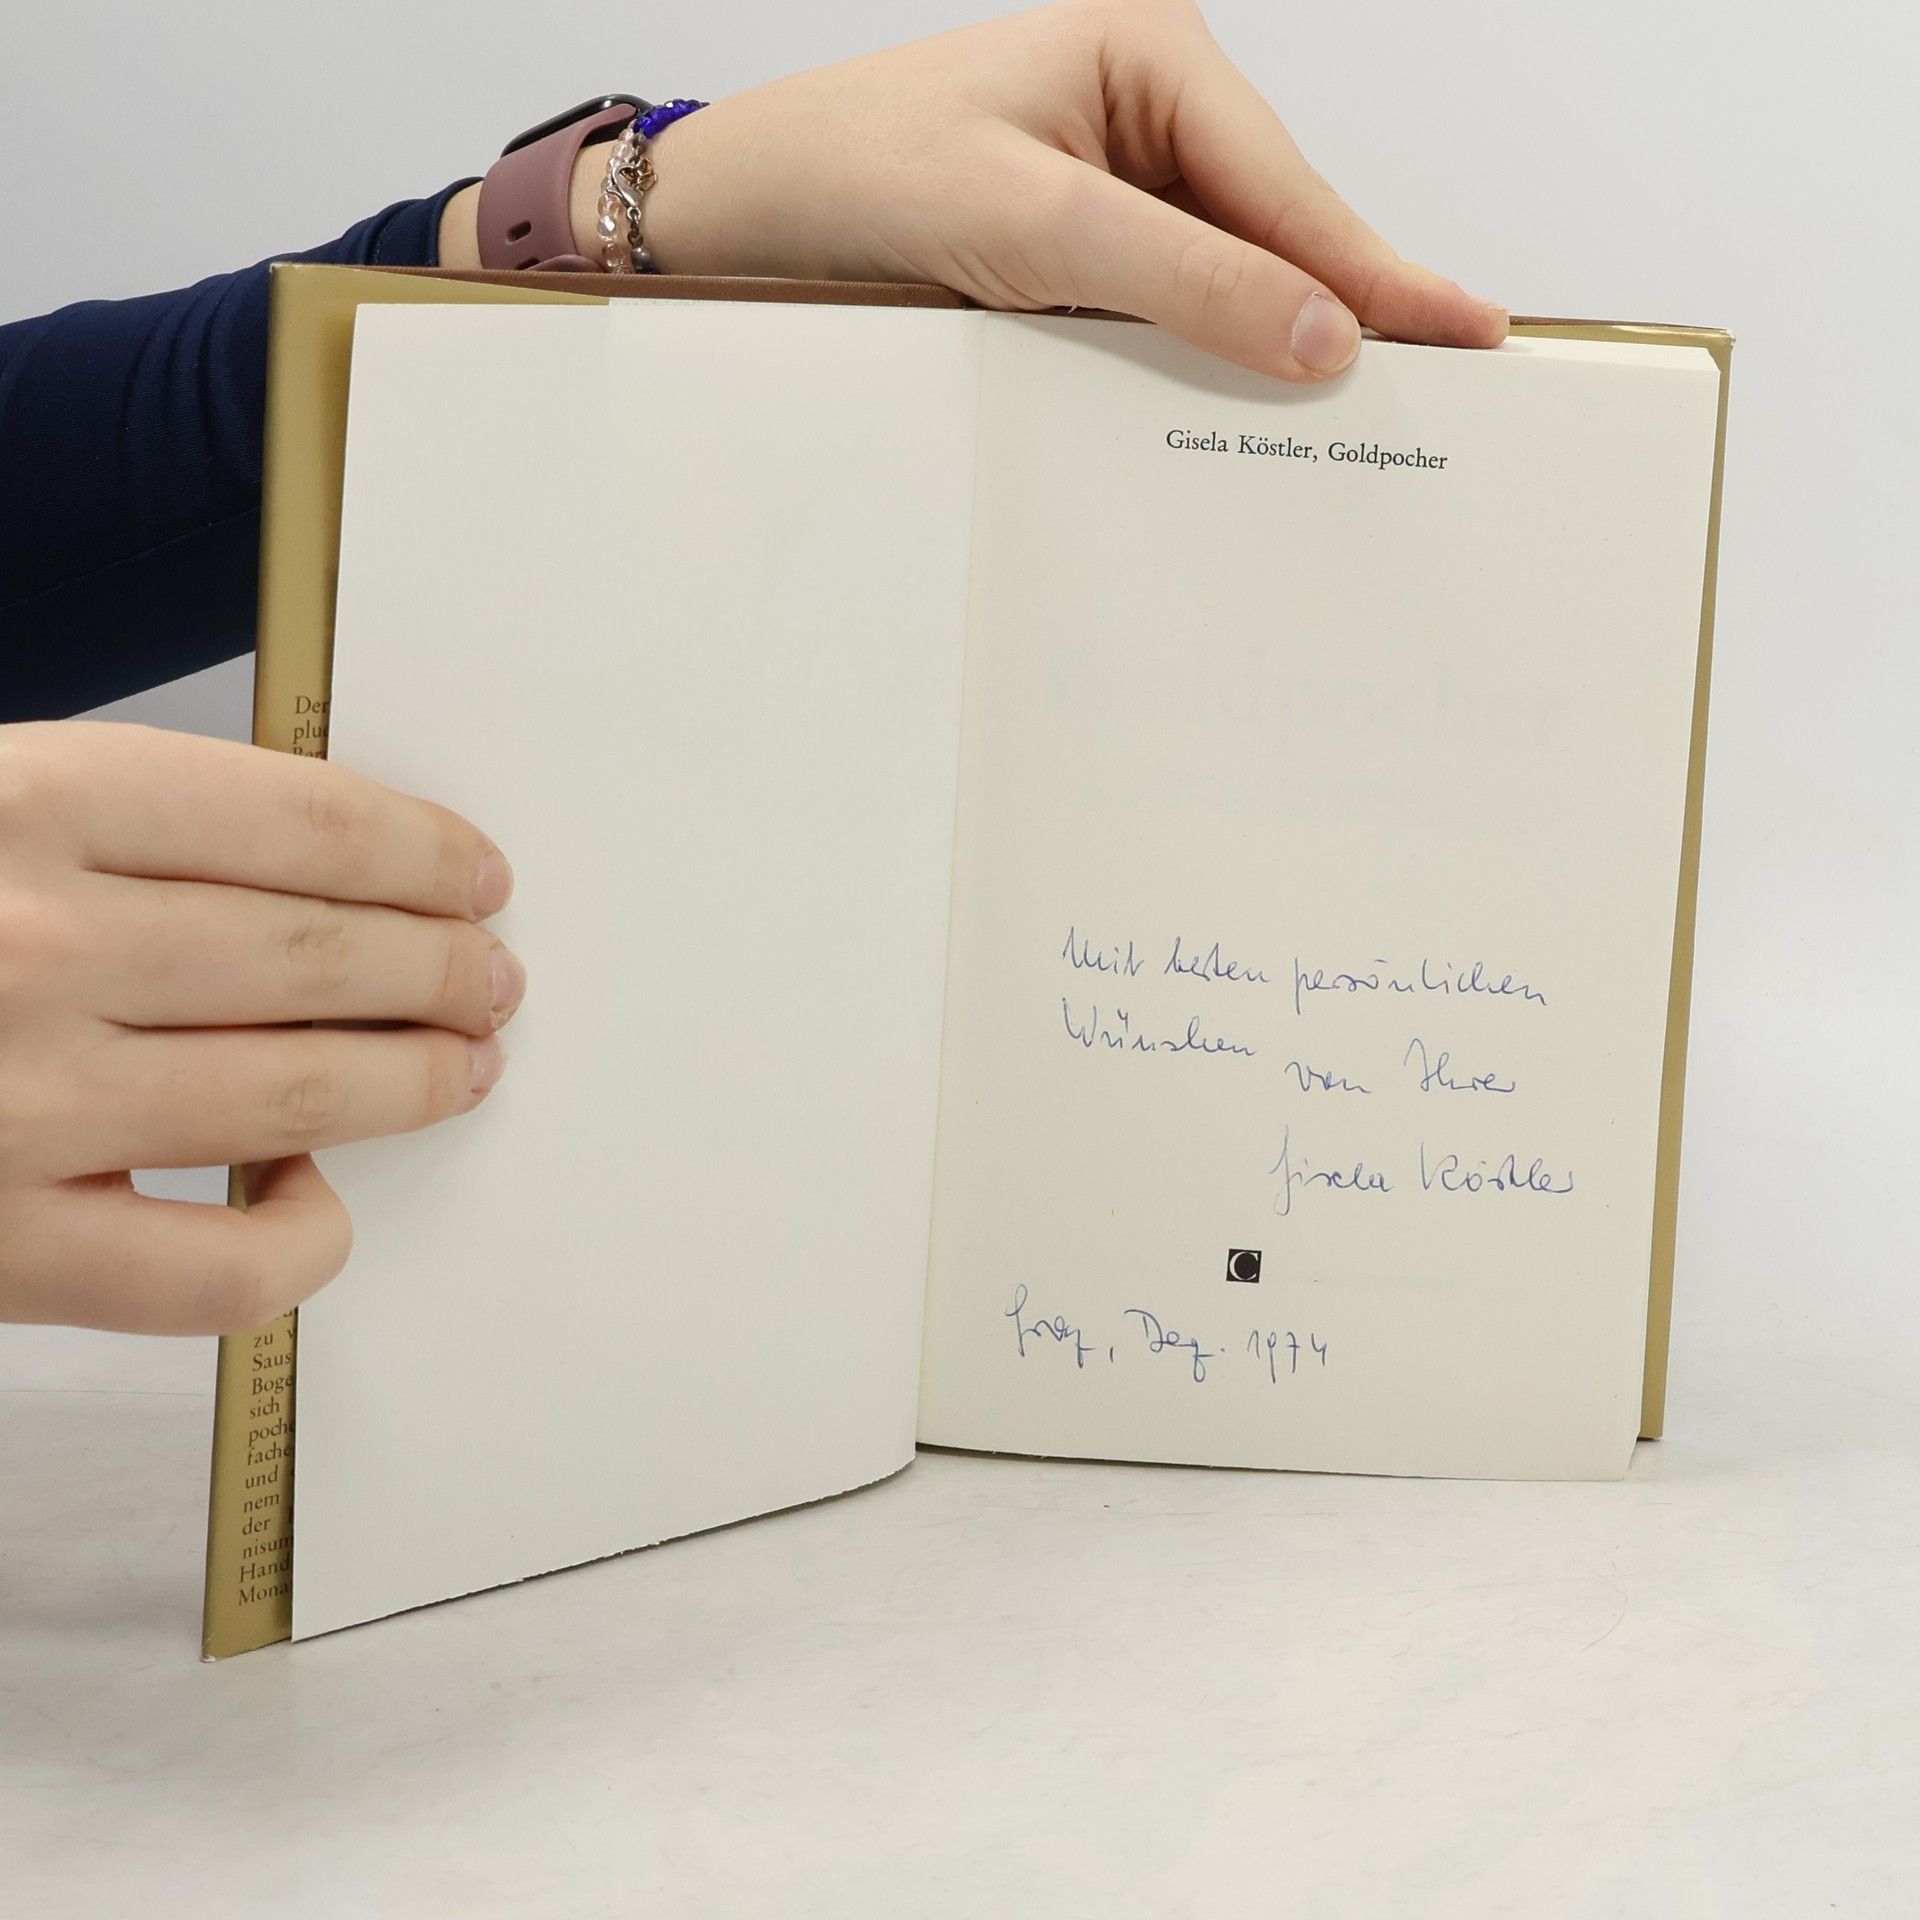 Der
plu
zu
Saus
Boge
sich
poch
fache
und
nem
der
nisum
Hand
Mona
Gisela Köstler, Goldpocher
Goldpocher
Mit besten persönlichen
Wünschen
von Ihrer
Gisela Köstler
C
Graz, Dez. 1974